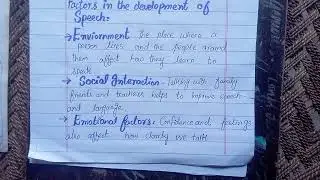 Factors in the development of
Speech:
→ Enviornment the place where a
person lives and the people around
them affect how they learn to
speak
→ Social Interaction - Talking with family
friends and teachers helps to improve speech
and language
→ Emotional factors: Confidence and feelings
also affect how clearly we talk